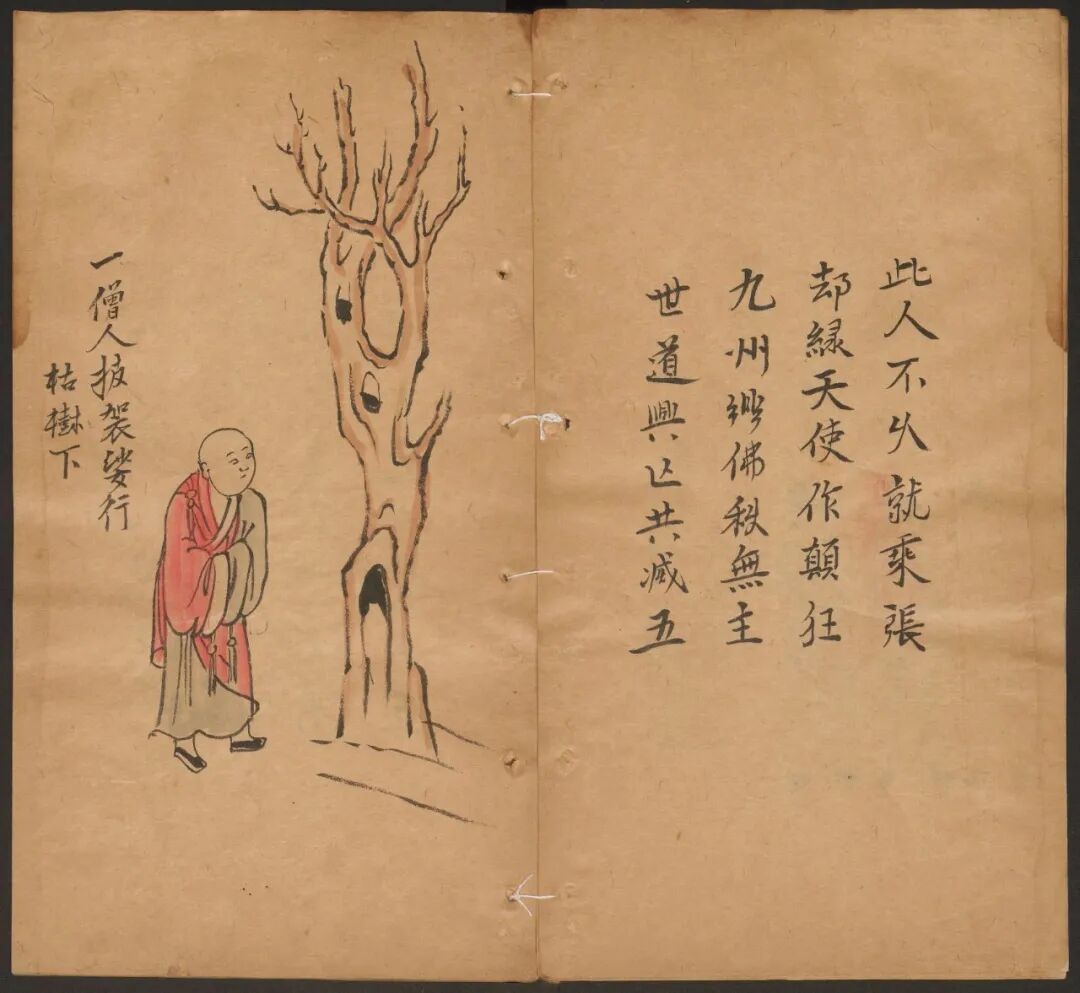 此人不久就乘張
却緑天使作顛狂
九州佛秩無主
世道興亡共减五
一僧人披袈娑行
枯樹下